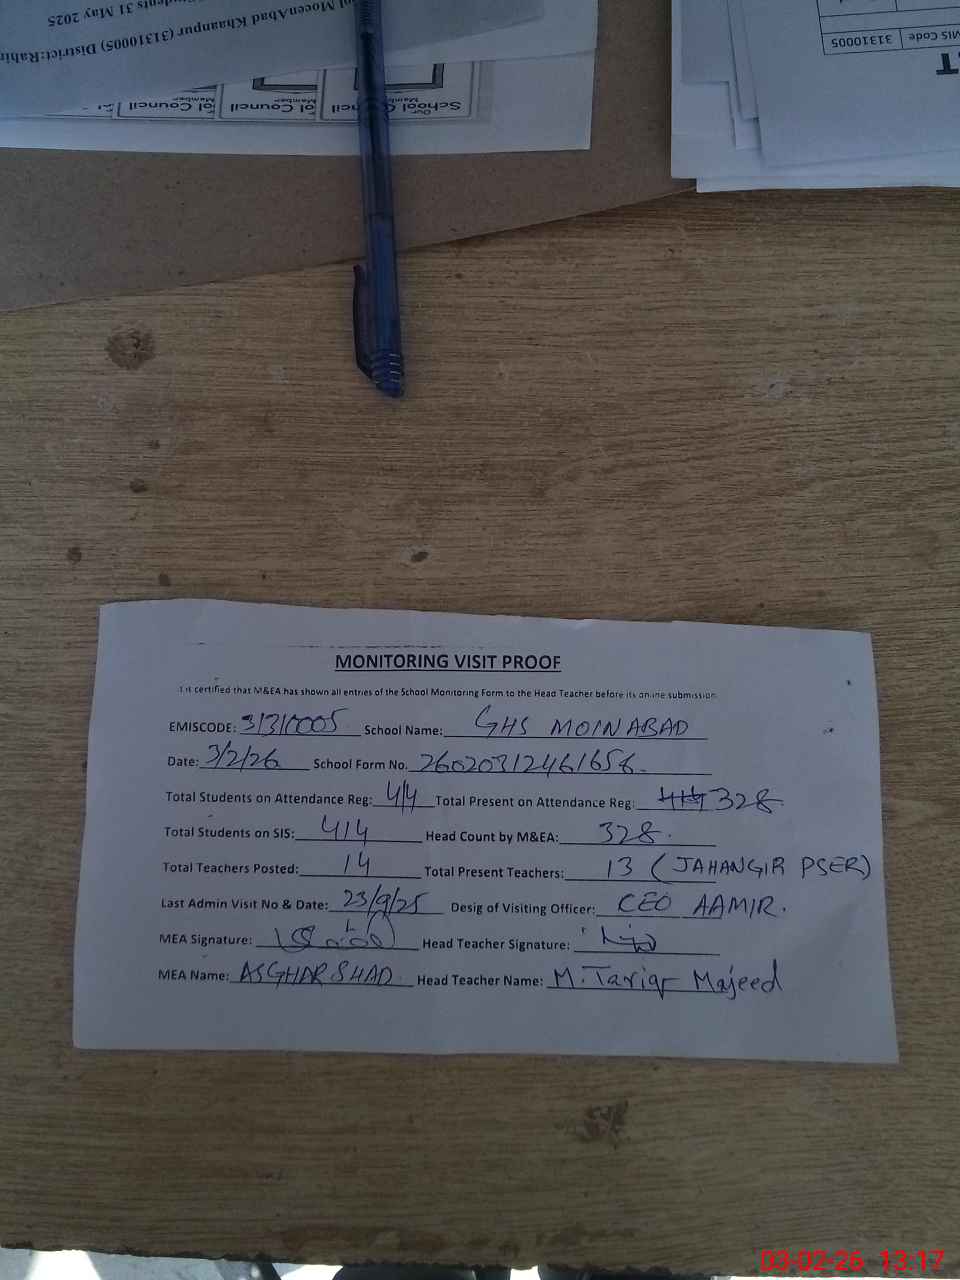 ol MoeenAbad Khaanpur (31310005) District:Rahim
31 May 2025
Our
School Council
Member
ol Council
Member
ol Council
Member
MIS Code 31310005
MONITORING VISIT PROOF
It is certified that M&EA has shown all entries of the School Monitoring Form to the Head Teacher before its online submission.
EMISCODE: 31310005 School Name: GHS MOINABAD
Date: 3/2/26 School Form No.
Total Students on Attendance Reg: 414 Total Present on Attendance Reg: 328
Total Students on SIS: 414 Head Count by M&EA: 328.
Total Teachers Posted: 14 Total Present Teachers: 13 (JAHANGIR PSER)
Last Admin Visit No & Date: 23/9/25 Desig of Visiting Officer: CEO AAMIR.
MEA Signature: Head Teacher Signature:
MEA Name: ASGHAR SHAD Head Teacher Name: M. Tariq Majeed
03-02-26 13:17